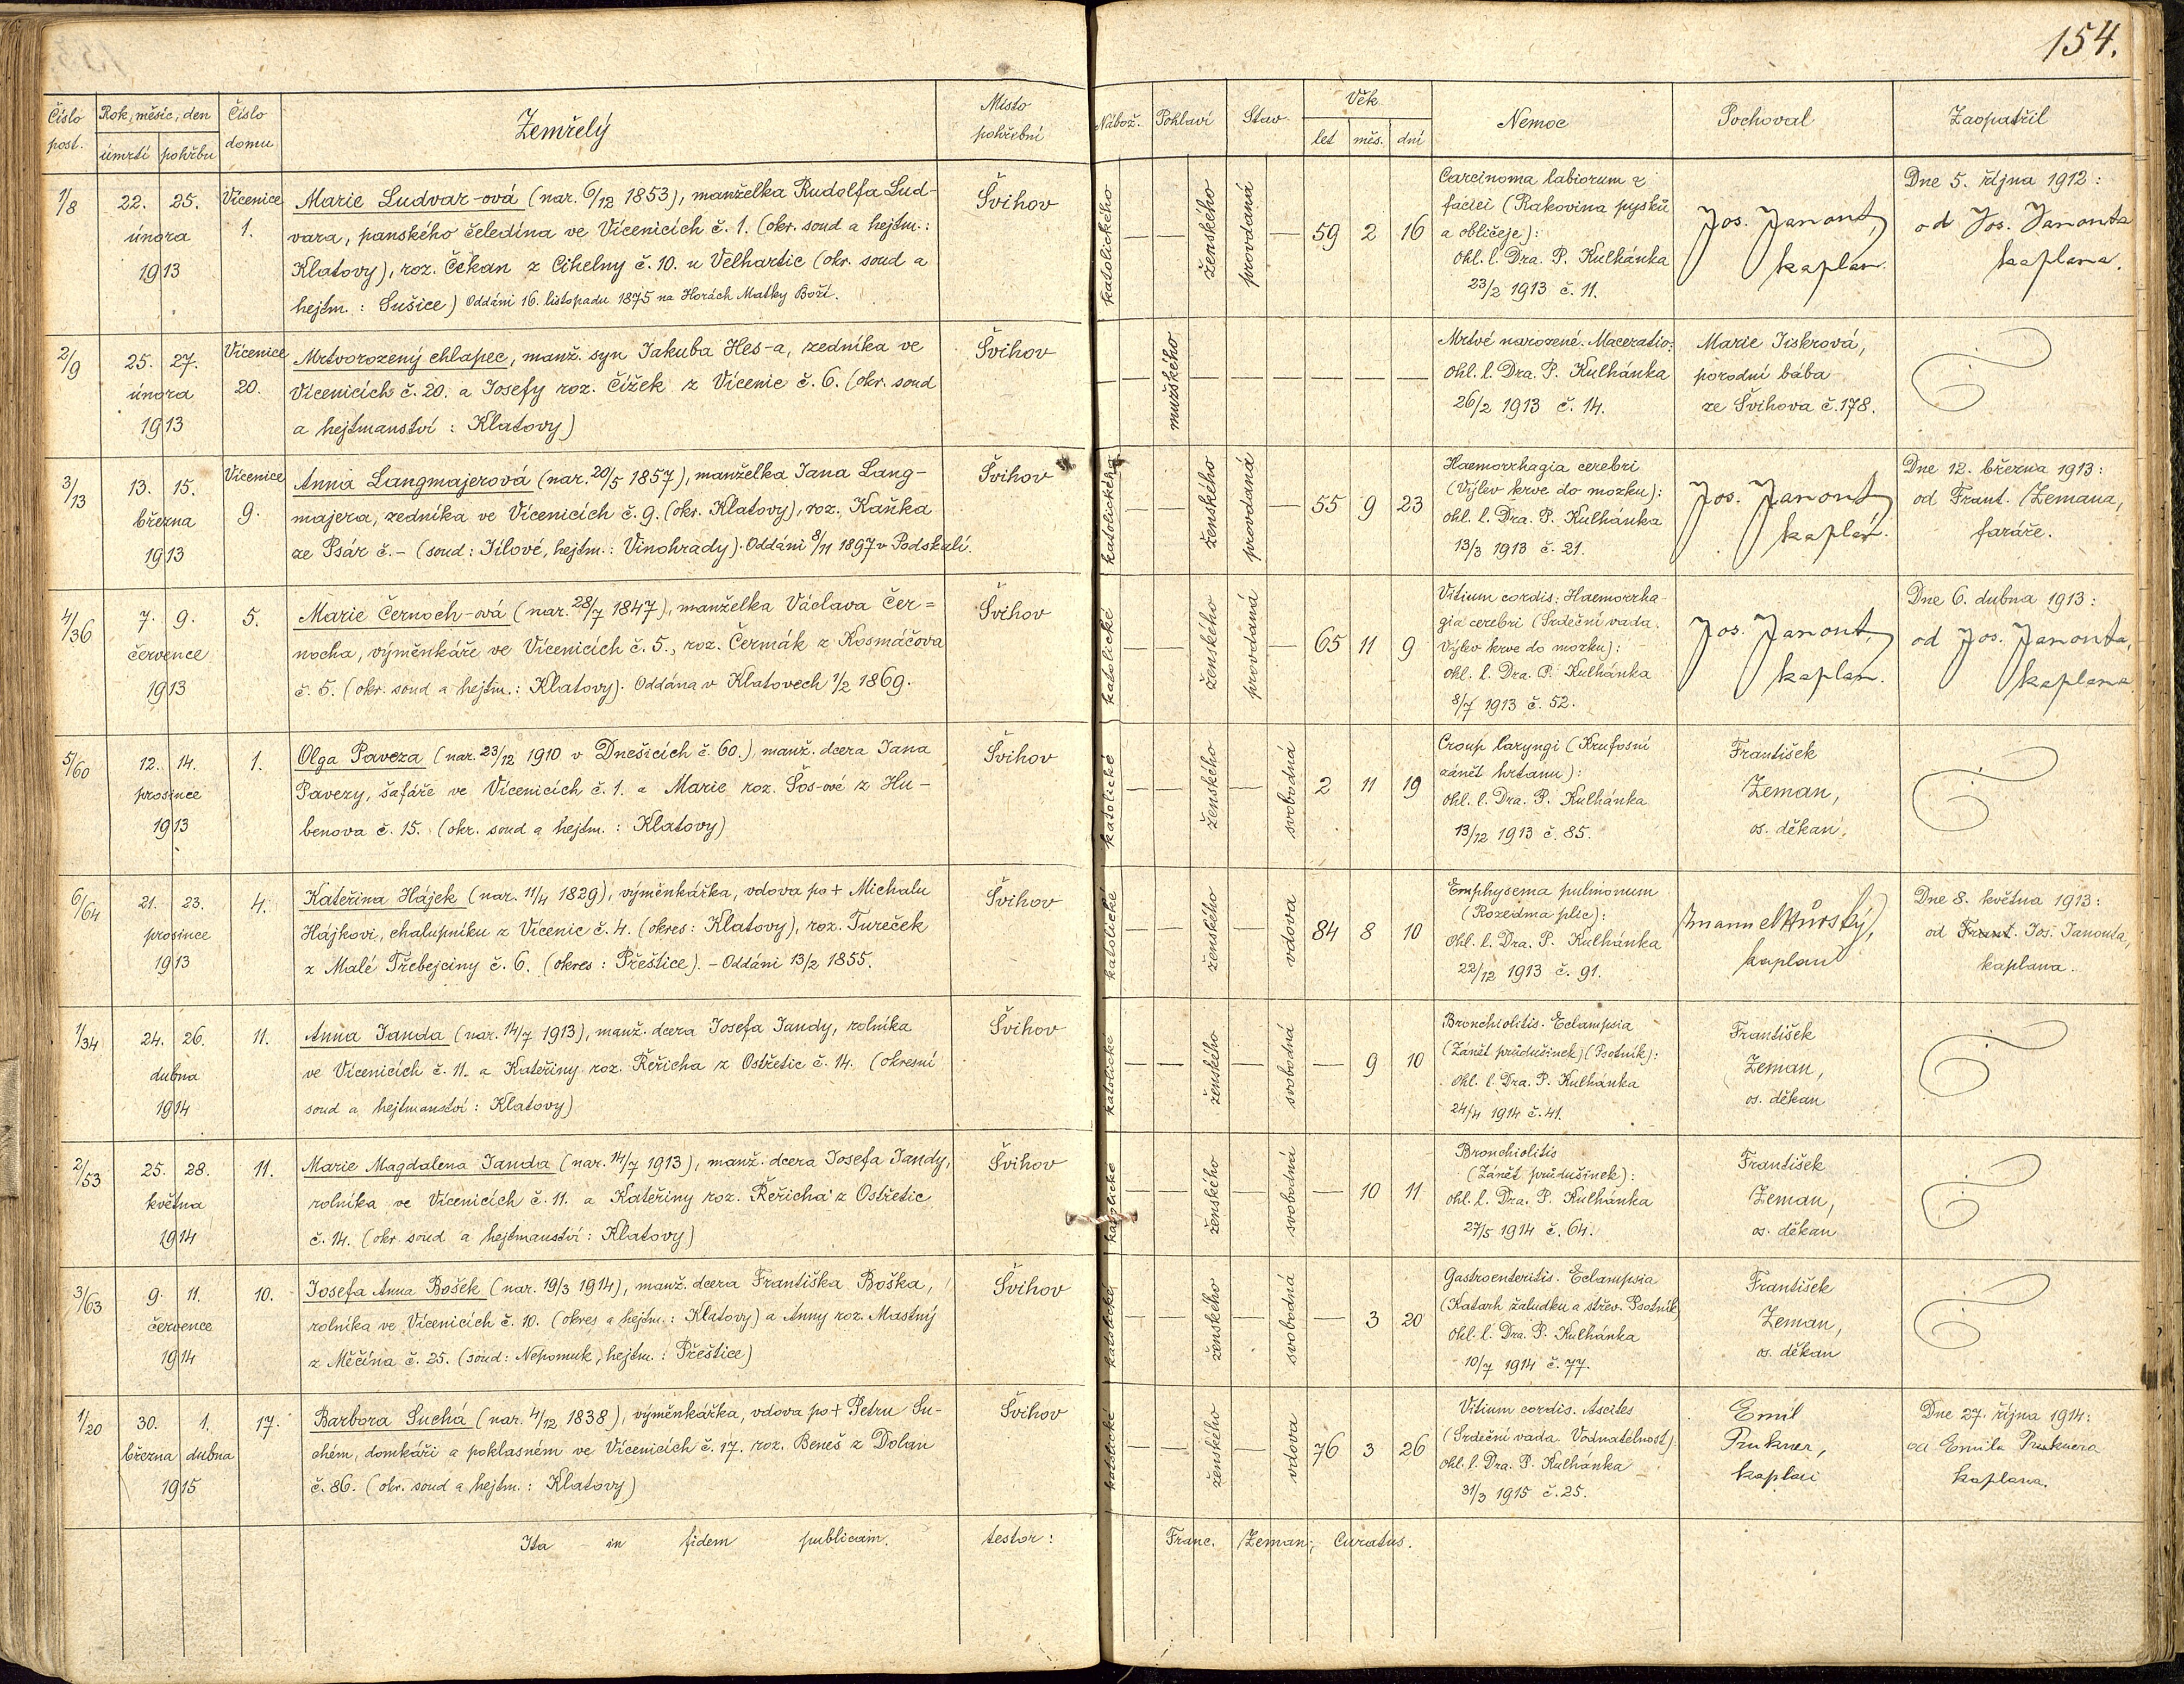 154.
Číslo post. Rok, měsíc, den úmrtí pohřbu Číslo domu Zemřelý Místo pohřební Nábož. Pohlaví Stav Věk let měs. dní Nemoc Pochoval Zaopatřil
1/8
22. 25.
února
1913
Vícenice
1.
Marie Ludvar-ová (nar. 6/12 1853), manželka Rudolfa Lud-
vara, panského čeledína ve Vícenicích č. 1. (okr. soud a hejtm.:
Klatovy), roz. Čekan z Cihelny č. 10. u Velhartic (okr. soud a
hejtm.: Sušice) Oddáni 16. listopadu 1875 na Horách Matky Boží.
Švihov
katolického
ženského
provdaná
59 2 16
Carcinoma labiorum et
faciei (Rakovina pysků
a obličeje):
Ohl. l. Dra. P. Kulhánka
23/2 1913 č. 11.
Jos. Janont,
kaplan.
Dne 5. října 1912:
od Jos. Janonta
kaplana.
2/9
25. 27.
února
1913
Vícenice
20.
Mrtvorozený chlapec, manž. syn Jakuba Hes-a, zedníka ve
Vícenicích č. 20. a Josefy roz. Čížek z Vícenic č. 6. (okr. soud
a hejtmanství: Klatovy)
Švihov
mužského
Mrtvé narozené. Maceratio:
Ohl. l. Dra. P. Kulhánka
26/2 1913 č. 14.
Marie Jiskrová,
porodní bába
ze Švihova č. 178.
3/13
13. 15.
března
1913
Vícenice
9.
Anna Langmajerová (nar. 20/5 1857), manželka Jana Lang-
majera, zedníka ve Vícenicích č. 9. (okr. Klatovy), roz. Kaňka
ze Psár č. – (soud: Jílové, hejtm.: Vinohrady). Oddáni 8/11 1897 v Podskalí.
Švihov
katolického
ženského
provdaná
55 9 23
Haemorrhagia cerebri
(Výlev krve do mozku):
Ohl. l. Dra. P. Kulhánka
13/3 1913 č. 21.
Jos. Janont,
kaplan.
Dne 12. března 1913:
od Frant. Zemana,
faráře.
4/36
7. 9.
července
1913
5.
Marie Černoch-ová (nar. 28/7 1847), manželka Václava Čer=
nocha, výměnkáře ve Vícenicích č. 5., roz. Čermák z Kosmáčova
č. 5. (okr. soud a hejtm.: Klatovy). Oddána v Klatovech 1/2 1869.
Švihov
katolické
ženského
provdaná
65 11 9
Vitium cordis: Haemorrha-
gia cerebri (Srdeční vada.
Výlev krve do mozku):
Ohl. l. Dra. P. Kulhánka
8/7 1913 č. 52.
Jos. Janont,
kaplan.
Dne 6. dubna 1913:
od Jos. Janonta,
kaplana
5/60
12. 14.
prosince
1913
1.
Olga Paveza (nar. 23/12 1910 v Dnešicích č. 60.), manž. dcera Jana
Pavezy, šafáře ve Vícenicích č. 1. a Marie roz. Šos-ové z Hu-
benova č. 15. (okr. soud a hejtm.: Klatovy)
Švihov
katolické
ženského
svobodná
2 11 19
Croup laryngi (Krufosní
zánět hrtanu):
Ohl. l. Dra. P. Kulhánka
13/12 1913 č. 85.
František
Zeman,
os. děkan.
6/64
21. 23.
prosince
1913
4.
Kateřina Hájek (nar. 11/4 1829), výměnkářka, vdova po + Michalu
Hájkovi, chalupníku z Vícenic č. 4. (okres: Klatovy), roz. Tureček
z Malé Třebejciny č. 6. (okres: Přeštice). – Oddáni 13/2 1855.
Švihov
katolické
ženského
vdova
84 8 10
Emphysema pulmonum
(Rozedma plic):
Ohl. l. Dra. P. Kulhánka
22/12 1913 č. 91.
kaplan
Dne 8. května 1913:
od Frant. Jos. Janonta,
kaplana.
1/34
24. 26.
dubna
1914
11.
Anna Janda (nar. 14/7 1913), manž. dcera Josefa Jandy, rolníka
ve Vícenicích č. 11. a Kateřiny roz. Řeřicha z Ostřetic č. 14. (okresní
soud a hejtmanství: Klatovy)
Švihov
katolické
ženského
svobodná
9 10
Bronchiolitis. Eclampsia
(Zánět průdušinek) (Psotník):
Ohl. l. Dra. P. Kulhánka
24/4 1914 č. 41.
František
Zeman,
os. děkan
2/53
25. 28.
května
1914
11.
Marie Magdalena Janda (nar. 14/7 1913), manž. dcera Josefa Jandy,
rolníka ve Vícenicích č. 11. a Kateřiny roz. Řeřicha z Ostřetic
č. 14. (okr. soud a hejtmanství: Klatovy)
Švihov
katolické
ženského
svobodná
10 11
Bronchiolitis
(Zánět průdušinek):
Ohl. l. Dra. P. Kulhánka
27/5 1914 č. 64.
František
Zeman,
os. děkan
3/63
9. 11.
července
1914
10.
Josefa Anna Bošek (nar. 19/3 1914), manž. dcera Františka Boška,
rolníka ve Vícenicích č. 10. (okres a hejtm.: Klatovy) a Anny roz. Mastný
z Měčína č. 25. (soud: Nepomuk, hejtm.: Přeštice)
Švihov
katolické
ženského
svobodná
3 20
Gastroenteritis. Eclampsia
(Katarh žaludku a střev. Psotník)
Ohl. l. Dra. P. Kulhánka
10/7 1914 č. 77.
František
Zeman,
os. děkan
1/20
30. 1.
března dubna
1915
17.
Barbora Suchá (nar. 4/12 1838), výměnkářka, vdova po + Petru Su-
chém, domkáři a poklasném ve Vícenicích č. 17. roz. Beneš z Dolan
č. 86. (okr. soud a hejtm.: Klatovy)
Švihov
katolické
ženského
vdova
76 3 26
Vitium cordis. Ascites
(Srdeční vada. Vodnatelnost)
Ohl. l. Dra. P. Kulhánka
31/3 1915 č. 25.
Emil
Prukner,
kaplan
Dne 27. října 1914:
od Emila Pruknera
kaplana.
Ita in fidem publicam. testor: Franc. Zeman, Curatus.